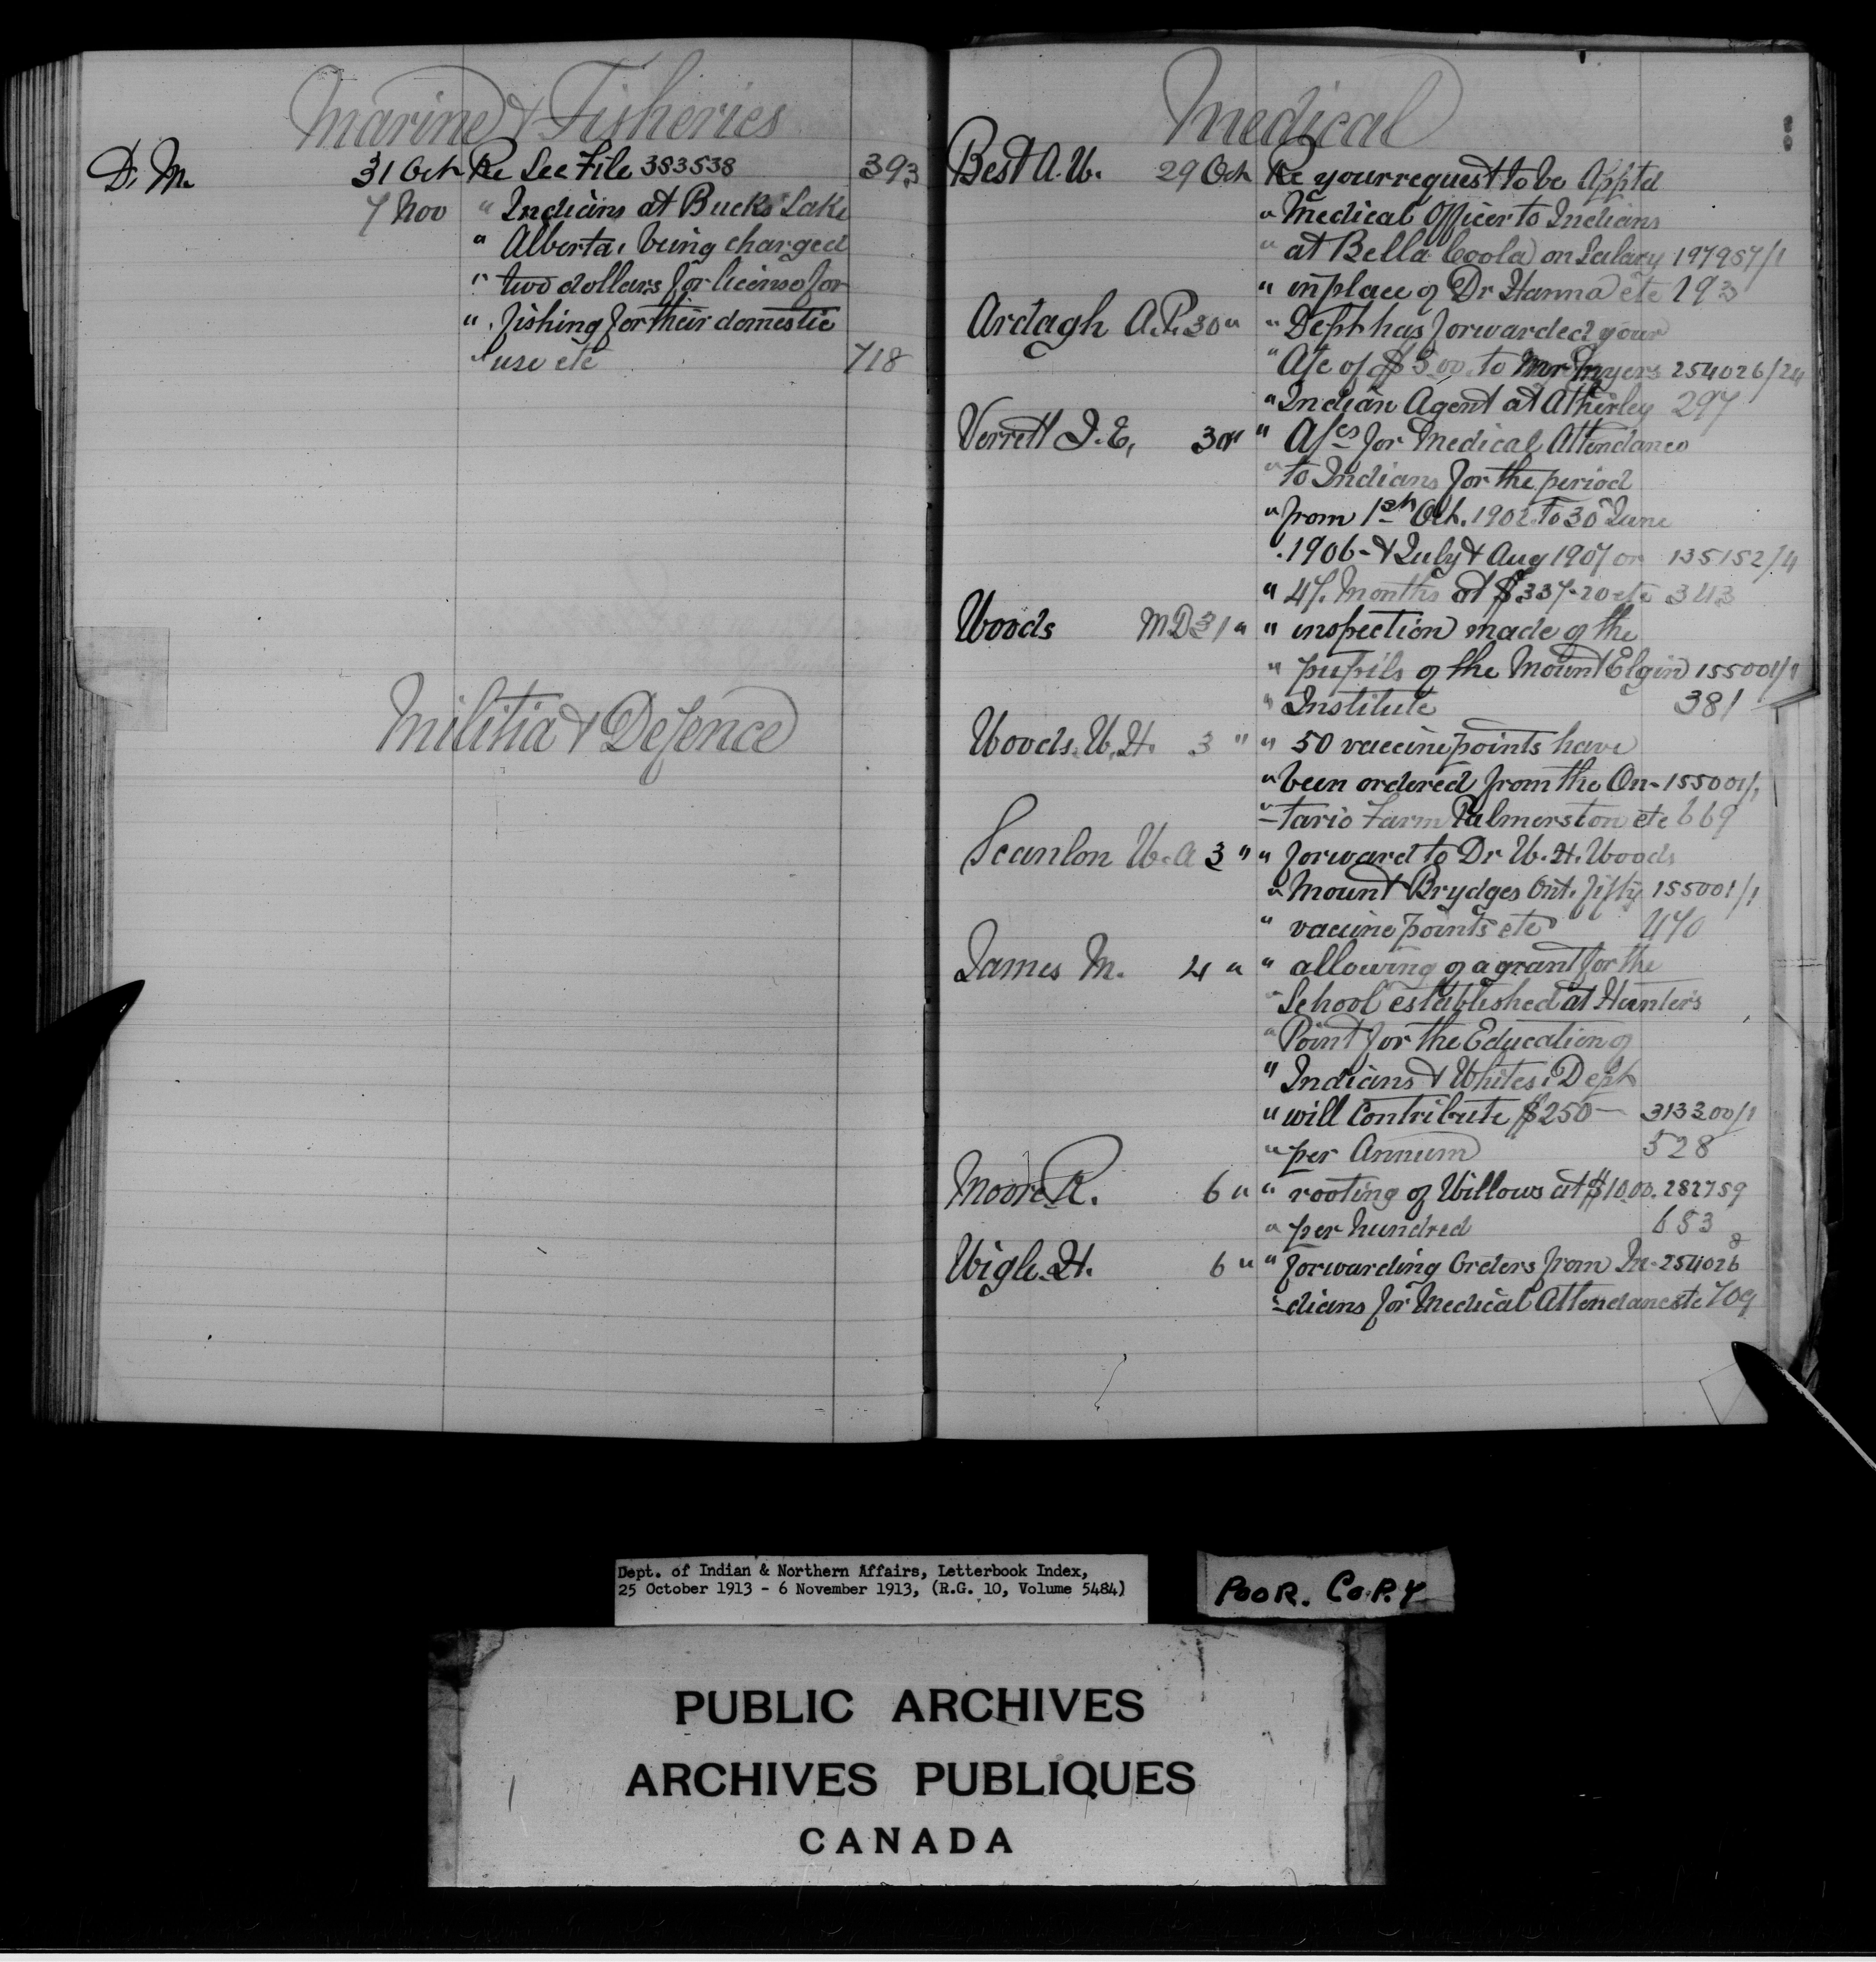 Marine & Fisheries
D. M. 31 Oct Re See File 383538 393
7 Nov " Indians at Bucks Lake
" Alberta, being charged
" two dollars for license for
" fishing for their domestic
" use etc 718
Militia & Defence
Medical
Best A. W. 29 Oct Re your request to be Apptd
" Medical Officer to Indians
" at Bella Coola on Salary 197957/1
" in place of Dr Hanna etc 193
Ardagh A.P. 30 " " Dept has forwarded your
" A/c of $5.00 to Mr Myers 254026/24
" Indian Agent at Atherley 297
Verrett J. E, 30 " " A/cs for Medical Attendance
" to Indians for the period
" from 1st Oct. 1902 to 30 June
" 1906 - & July & Aug 1907 or 135152/4
" 47. Months at $337.20 etc 343
Woods M D 31 " " inspection made of the
" pupils of the Mount Elgin 155001/1
" Institute 381
Woods. W. H. 3 " " 50 vaccine points have
" been ordered from the On- 155001/1
" -tario Farm Palmerston etc 669
Scanlon W. A 3 " " forward to Dr W. H. Woods
" Mount Brydges Ont. fifty 155001/1
" vaccine points etc 470
James M. 4 " " allowing of a grant for the
" School established at Hunter's
" Point for the Education of
" Indians & Whites, Dept
" will Contribute $250 - 313300/1
" per Annum 528
Moore R. 6 " " rooting of Willows at $10.00. 282759
" per hundred 683
Wigle H. 6 " " forwarding Orders from In- 254026
" -dians for Medical Attendance etc 709
Dept. of Indian & Northern Affairs, Letterbook Index,
25 October 1913 - 6 November 1913, (R.G. 10, Volume 5484)
POOR. COPY
PUBLIC ARCHIVES
ARCHIVES PUBLIQUES
CANADA